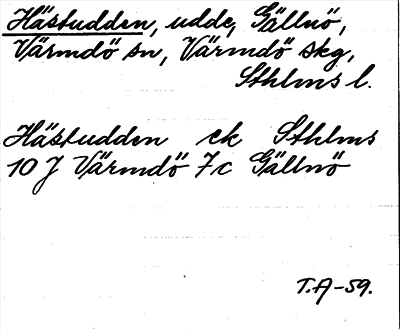 Hästudden, udde, Gällnö,
Värmdö sn, Värmdö skg,
Sthlms l.
Hästudden ek Sthlms
10 J Värmdö 7c Gällnö
T.A-59.